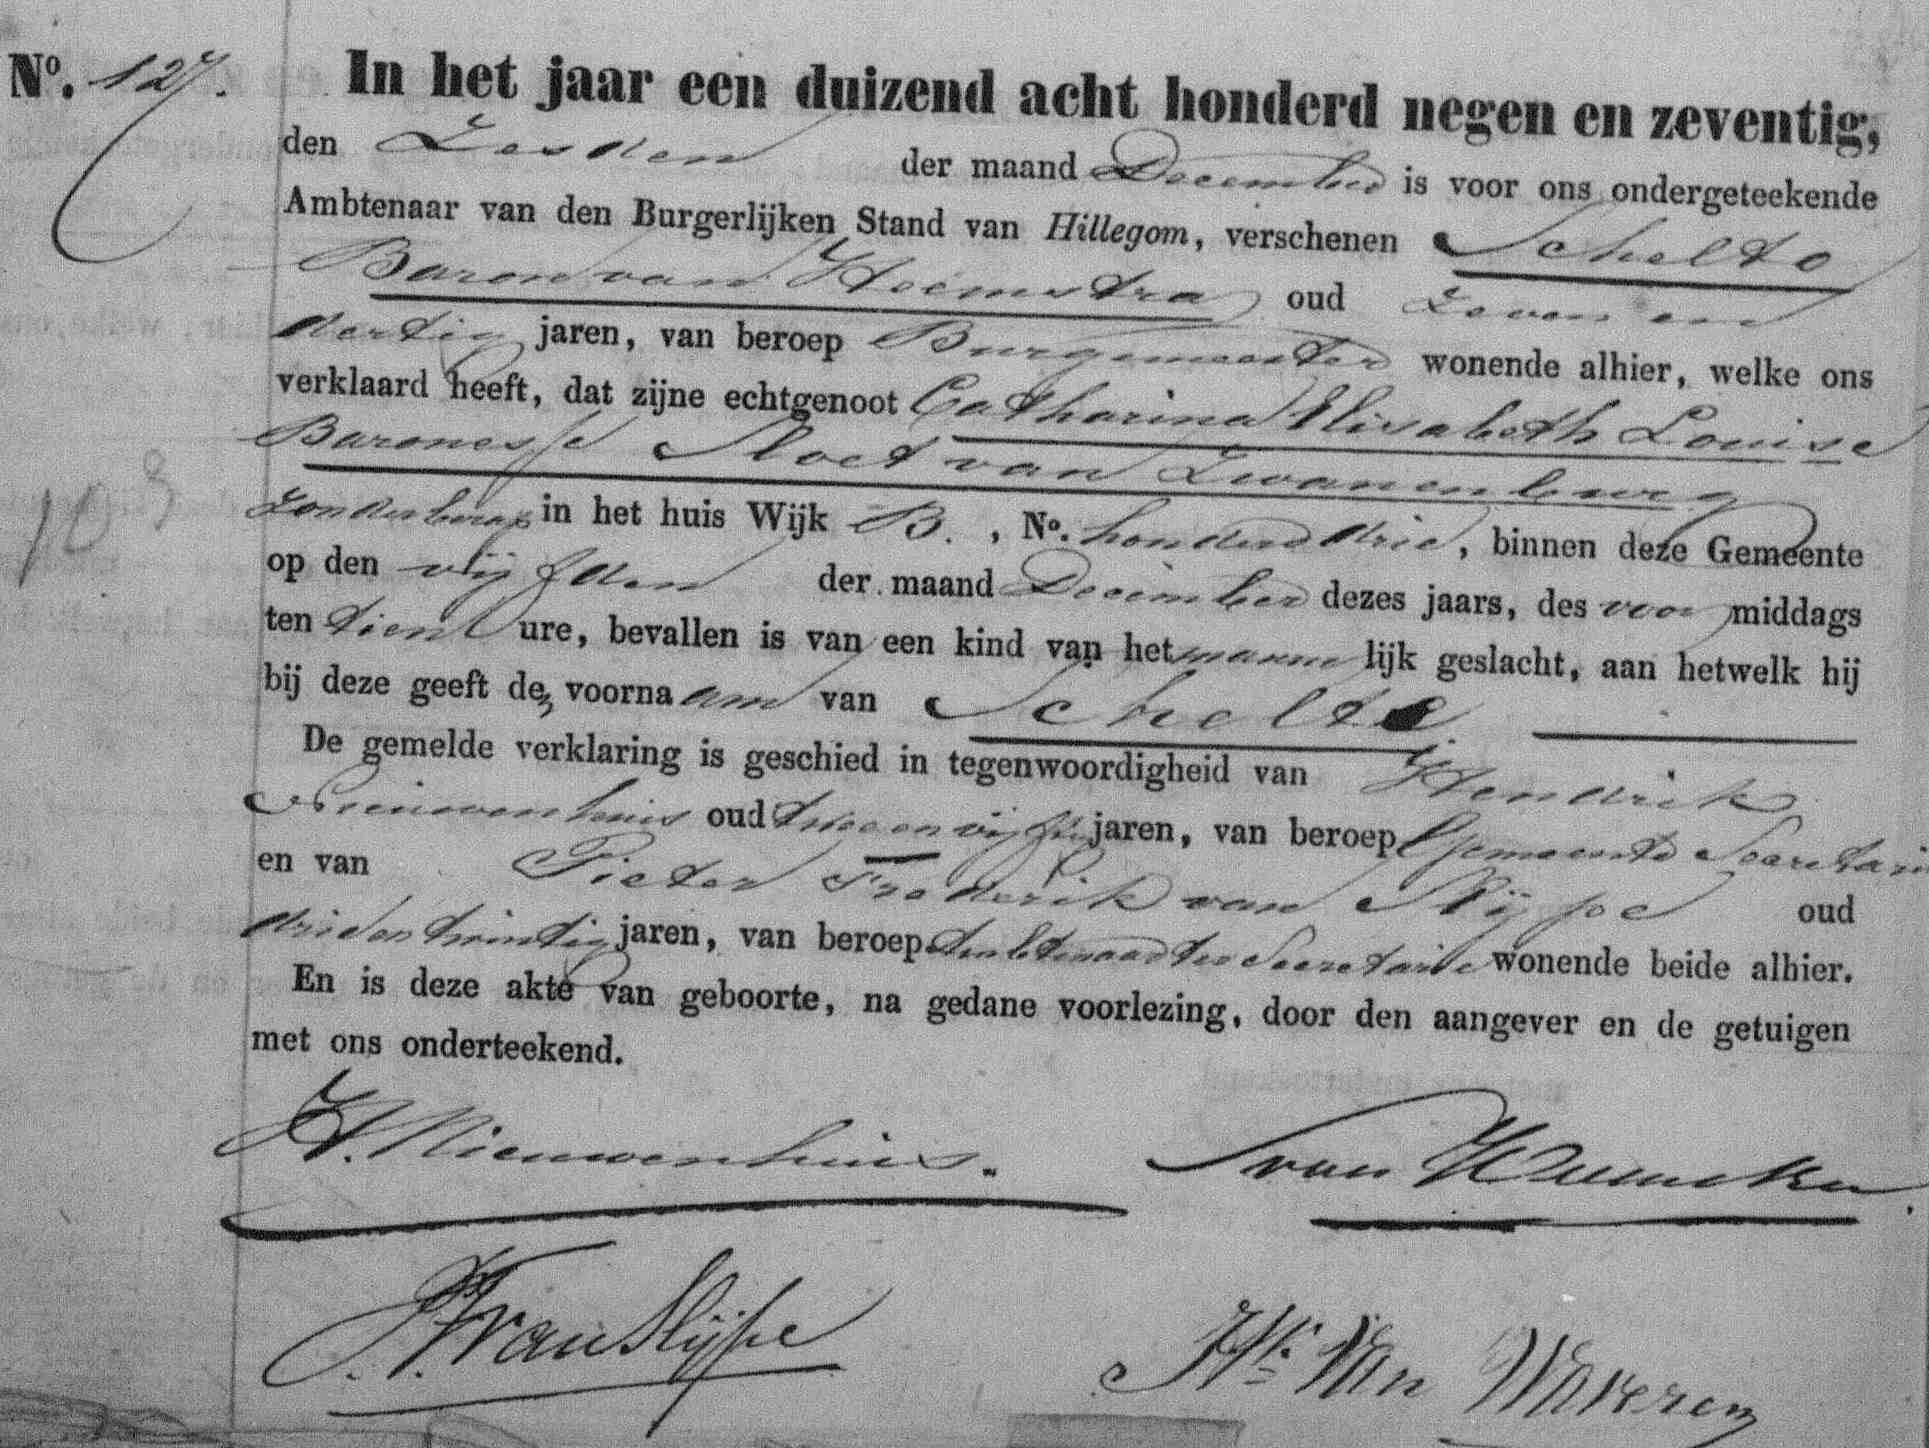 No. 127.
In het jaar een duizend acht honderd negen en zeventig,
den Zesden der maand December is voor ons ondergeteekende
Ambtenaar van den Burgerlijken Stand van Hillegom, verschenen Schelto
Baron van Heemstra oud Zeven en
dertig jaren, van beroep Burgemeester wonende alhier, welke ons
verklaard heeft, dat zijne echtgenoot Catharina Elisabeth Louise
Baronesse Sloet van Zwanenburg
zonder beroep in het huis Wijk B., No. honderd drie, binnen deze Gemeente
103
op den vijfden der maand December dezes jaars, des voor middags
ten tien ure, bevallen is van een kind van het manne lijk geslacht, aan hetwelk hij
bij deze geeft den voornaam van Schelte
De gemelde verklaring is geschied in tegenwoordigheid van Hendrik
Nieuwenhuis oud twee en vijftig jaren, van beroep Gemeente Secretaris
en van Pieter Frederik van Slijpe oud
drie en twintig jaren, van beroep Ambtenaar ter Secretarie wonende beide alhier.
En is deze akte van geboorte, na gedane voorlezing, door den aangever en de getuigen
met ons onderteekend.
H. Nieuwenhuis. S van Heemstra.
P. F. van Slijpe
Hk. Van Waveren